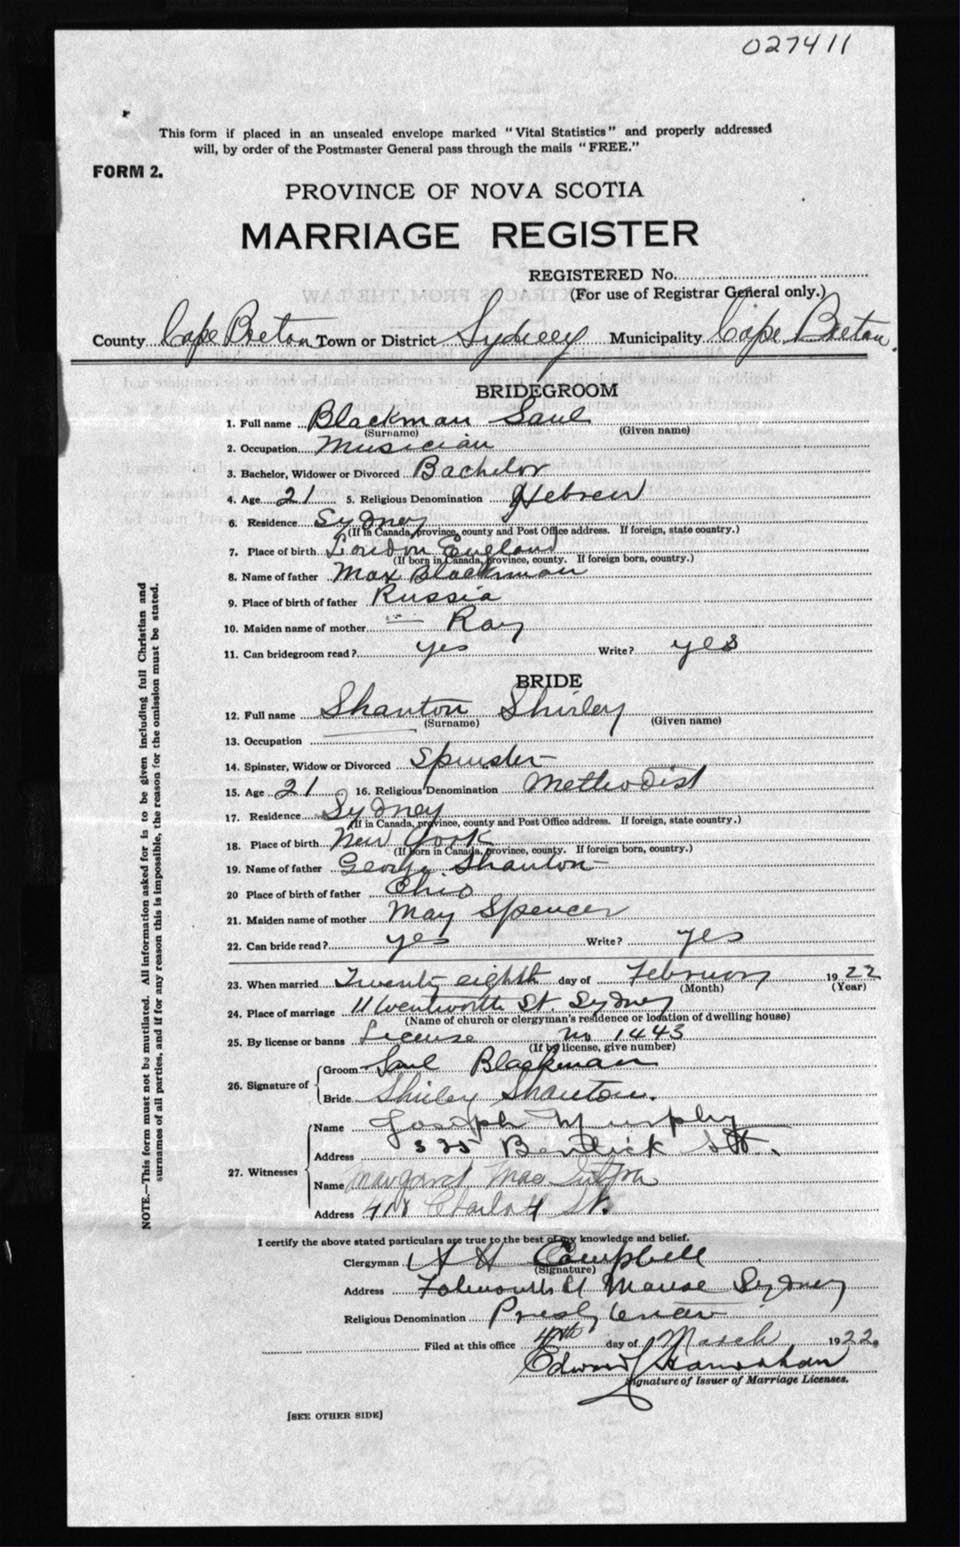 027411
This form if placed in an unsealed envelope marked "Vital Statistics" and properly addressed
will, by order of the Postmaster General pass through the mails "FREE."
FORM 2.
PROVINCE OF NOVA SCOTIA
MARRIAGE REGISTER
REGISTERED No.
(For use of Registrar General only.)
County Cape Breton Town or District Sydney Municipality Cape Breton.
BRIDEGROOM
1. Full name Blackman Saul
(Surname) (Given name)
2. Occupation Musician
3. Bachelor, Widower or Divorced Bachelor
4. Age 21 5. Religious Denomination Hebrew
6. Residence Sydney
(If in Canada, province, county and Post Office address. If foreign, state country.)
7. Place of birth London England
(If born in Canada, province, county. If foreign born, country.)
8. Name of father Max Blackman
9. Place of birth of father Russia
10. Maiden name of mother " Ray
11. Can bridegroom read? yes Write? yes
BRIDE
12. Full name Shanton Shirley
(Surname) (Given name)
13. Occupation
14. Spinster, Widow or Divorced Spinster
15. Age 21 16. Religious Denomination Methodist
17. Residence Sydney
(If in Canada, province, county and Post Office address. If foreign, state country.)
18. Place of birth New York
(If born in Canada, province, county. If foreign born, country.)
19. Name of father George Shanton
20 Place of birth of father Ohio
21. Maiden name of mother May Spencer
22. Can bride read? yes Write? yes
23. When married Twenty eighth day of February 1922
(Month) (Year)
24. Place of marriage 11 Wentworth St. Sydney
(Name of church or clergyman's residence or location of dwelling house)
25. By license or banns License No 1443
(If by license, give number)
26. Signature of Groom Saul Blackman
Bride Shirley Shanton.
27. Witnesses Name Joseph Murphy
Address 325 Bentick St.
Name Margaret Mac
Address Charlo St.
I certify the above stated particulars are true to the best of my knowledge and belief.
Clergyman A H Campbell
(Signature)
Address Falmouth St Manse Sydney
Religious Denomination Presbyterian
Filed at this office 4th day of March 1922.
Edward
Signature of Issuer of Marriage Licenses.
[SEE OTHER SIDE]
NOTE.—This form must not be mutilated. All information asked for is to be given including full Christian and
surnames of all parties, and if for any reason this is impossible, the reason for the omission must be stated.